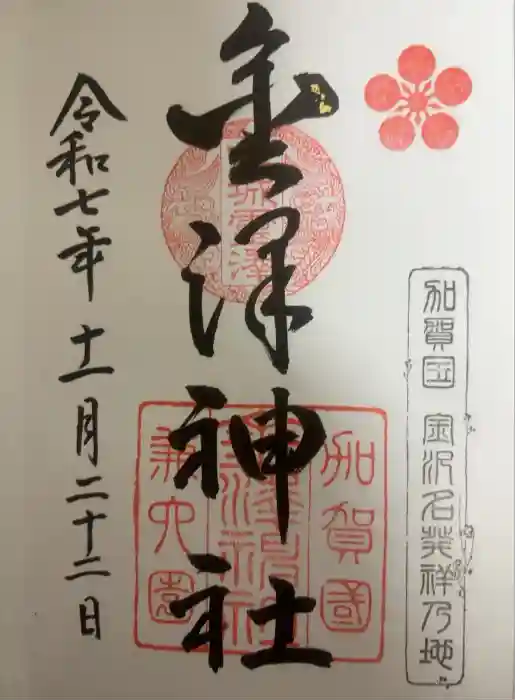 加賀国 金沢名発祥乃地
金澤神社
加賀國
金澤神社
兼六園
令和七年 十一月二十二日